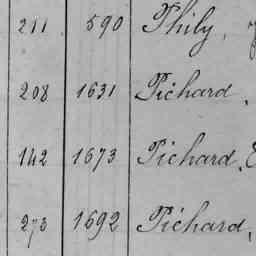 211 590 Phily,
208 1631 Pichard,
142 1673 Pichard,
273 1692 Pichard,